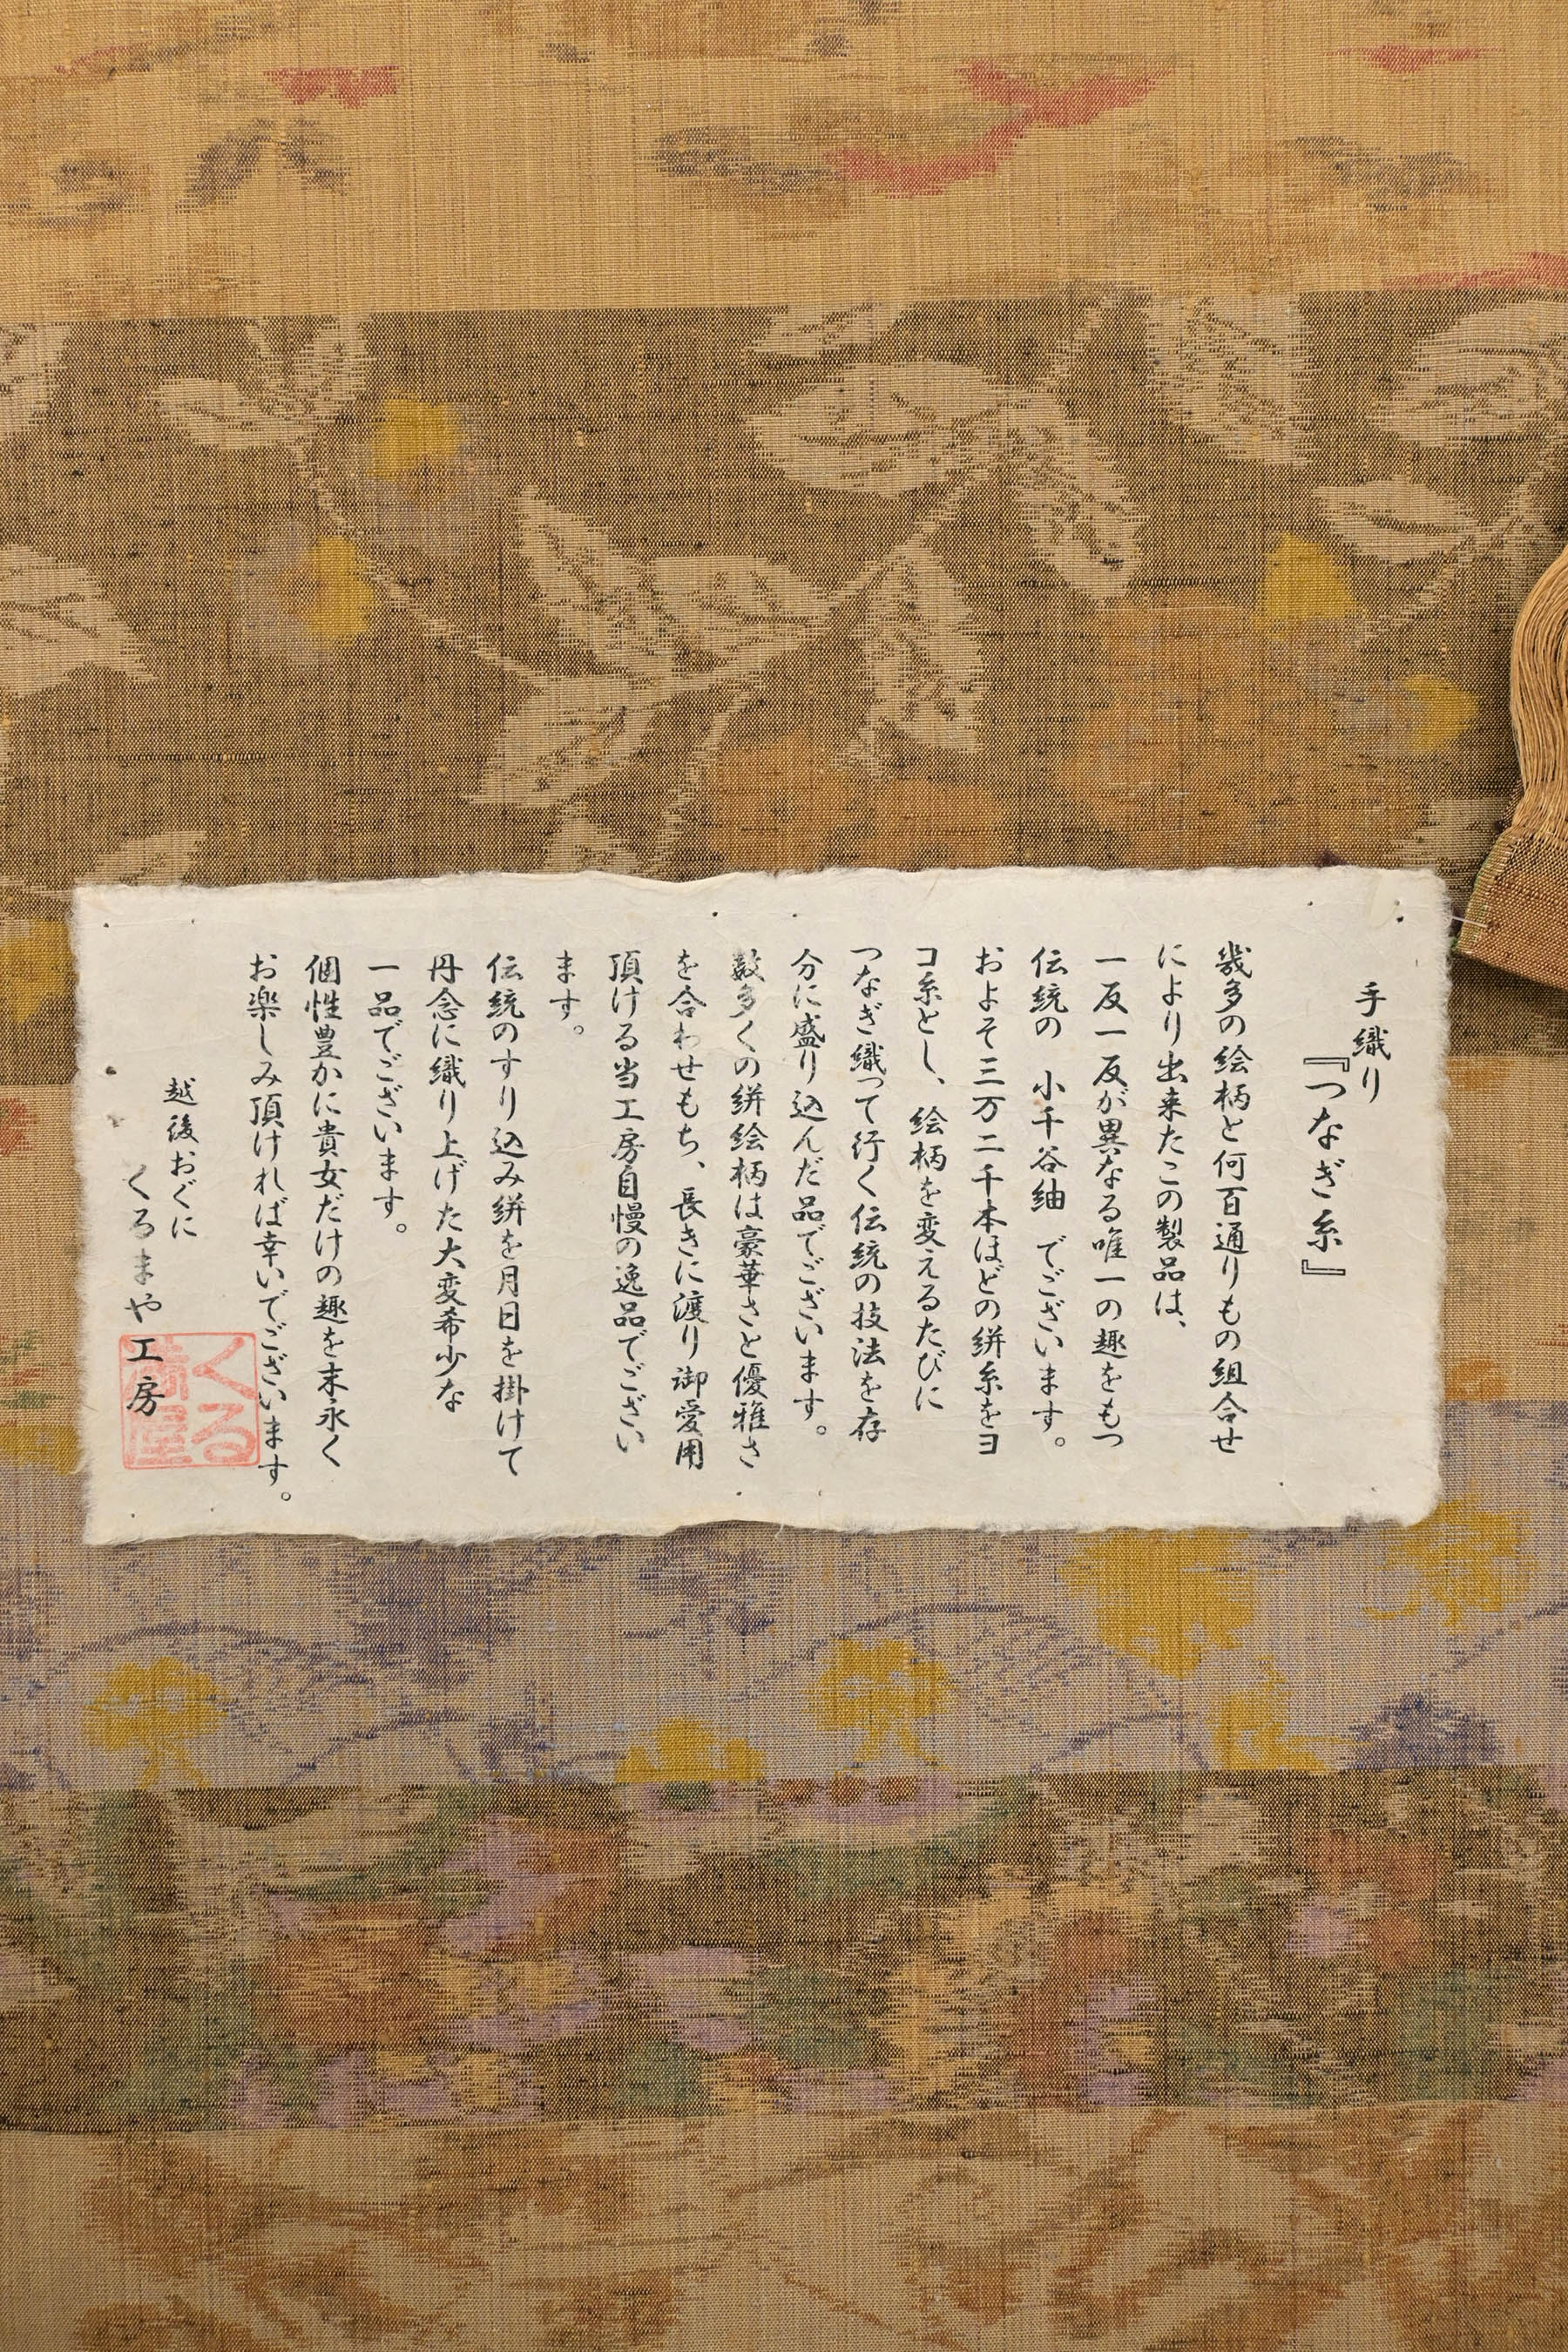 手織り
『つなぎ糸』
幾多の絵柄と何百通りもの組合せ
により出来たこの製品は、
一反一反が異なる唯一の趣をもつ
伝統の 小千谷紬 でございます。
およそ三万二千本ほどの絣糸をヨ
コ糸とし、絵柄を変えるたびに
つなぎ織って行く伝統の技法を存
分に盛り込んだ品でございます。
数多くの絣絵柄は豪華さと優雅さ
を合わせもち、長きに渡り御愛用
頂ける当工房自慢の逸品でござい
ます。
伝統のすり込み絣を月日を掛けて
丹念に織り上げた大変希少な
一品でございます。
個性豊かに貴女だけの趣を末永く
お楽しみ頂ければ幸いでございます。
越後おぐに
くるまや工房
くる